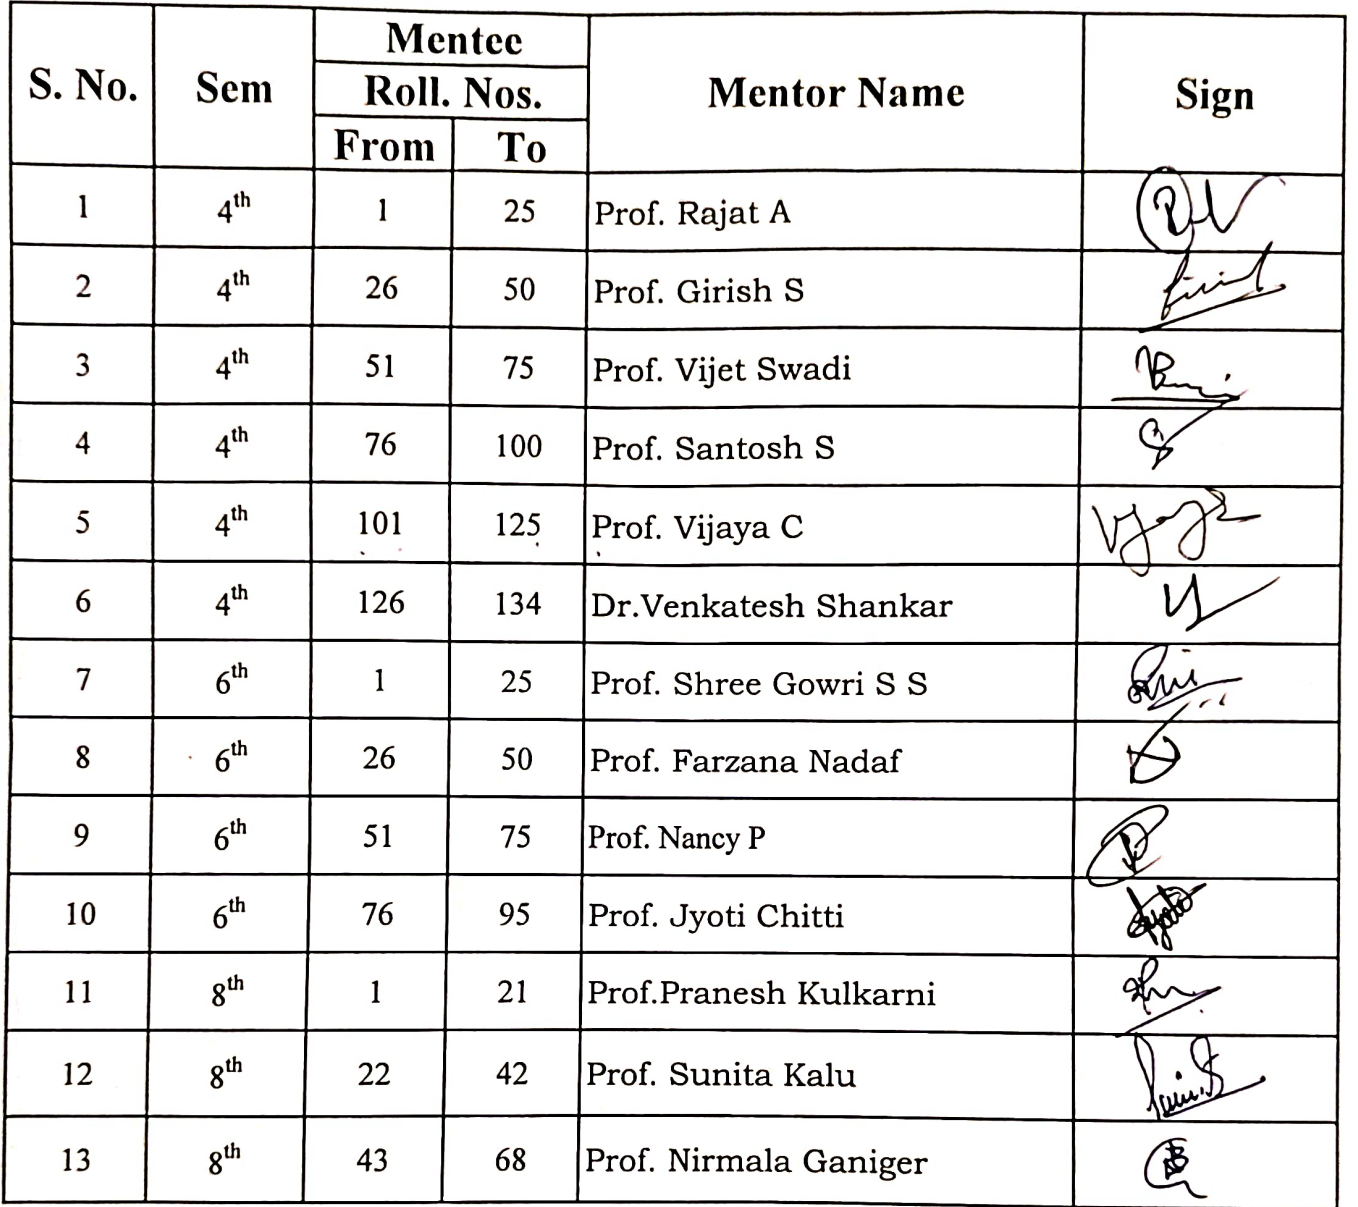 S. No. Sem Mentee Roll. Nos. From To Mentor Name Sign
1 4th 1 25 Prof. Rajat A
2 4th 26 50 Prof. Girish S
3 4th 51 75 Prof. Vijet Swadi
4 4th 76 100 Prof. Santosh S
5 4th 101 125 Prof. Vijaya C
6 4th 126 134 Dr.Venkatesh Shankar
7 6th 1 25 Prof. Shree Gowri S S
8 6th 26 50 Prof. Farzana Nadaf
9 6th 51 75 Prof. Nancy P
10 6th 76 95 Prof. Jyoti Chitti
11 8th 1 21 Prof.Pranesh Kulkarni
12 8th 22 42 Prof. Sunita Kalu
13 8th 43 68 Prof. Nirmala Ganiger